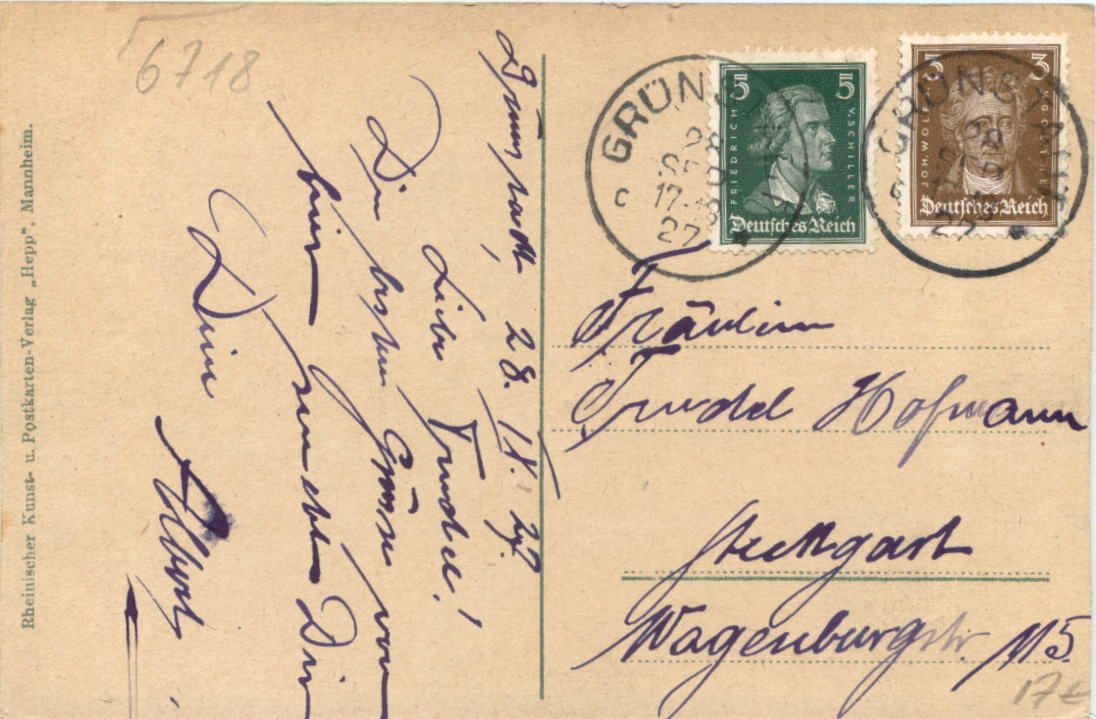 6718
Rheinischer Kunst- u. Postkarten-Verlag „Hepp“, Mannheim.
Grünstadt, 28. IX. 27.
Liebe Trudel!
Die besten Grüsse von
hier sendet Dir
Dein Albert.
GRÜNSTADT
28
SEP
17-18
27
C
5 5
FRIEDRICH V. SCHILLER
Deutsches Reich
GRÜNSTADT
3 3
JOH. WOLFG.
Deutsches Reich
Fräulein
Trudel Hofmann
Stuttgart
Wagenburgstr. 115